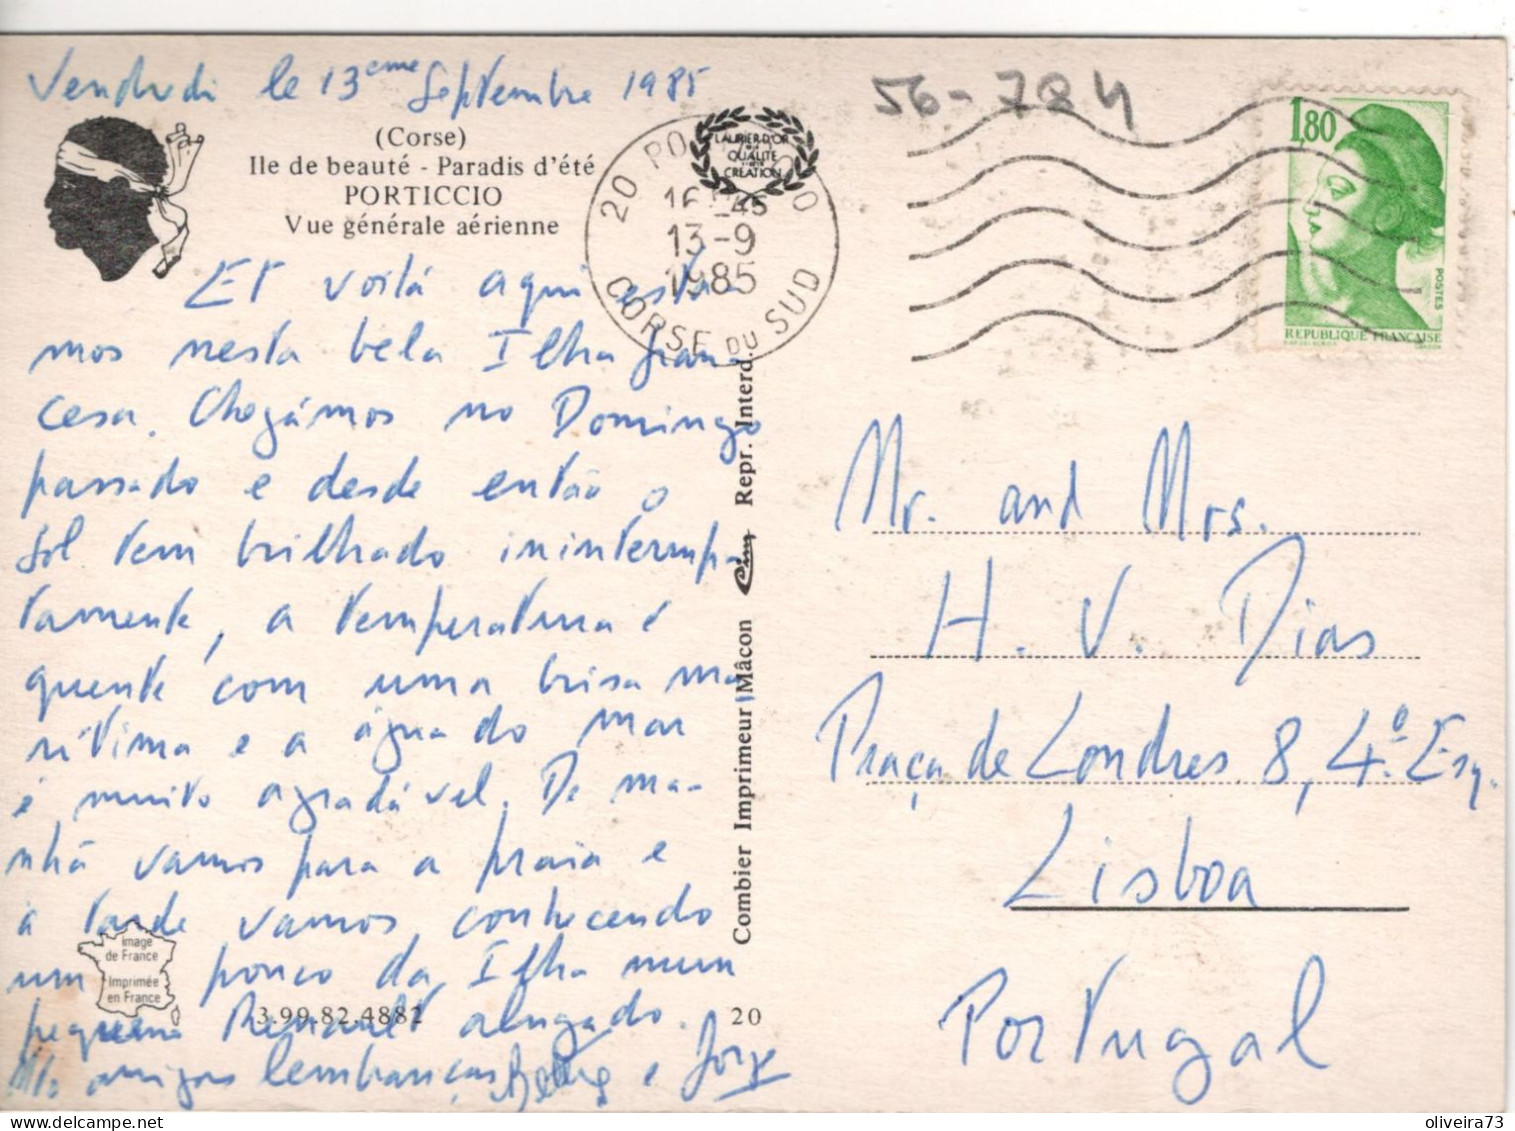 Vendredi le 13eme Septembre 1985
(Corse)
Ile de beauté - Paradis d'été
PORTICCIO
Vue générale aérienne
Et voilá aqui esta-
mos nesta bela Ilha fran-
cesa. Chegámos no Domingo
passado e desde então o
sol tem brilhado ininterrup-
tamente, a temperatura é
quente com uma brisa ma-
rítima e a água do mar
é muito agradável. De ma-
nhã vamos para a praia e
à tarde vamos conhecendo
um pouco da Ilha num
pequeno Renault alugado.
amigas lembranças e Jorge
Image
de France
Imprimée
en France
3.99.82.4882
20
Combier Imprimeur Mâcon
Repr. Interd.
20 CORSE DU SUD
16 45
13-9
1985
LAURIER D'OR
QUALITE
CREATION
56-784
1,80
POSTES
REPUBLIQUE FRANÇAISE
Mr. and Mrs.
H. V. Dias
Praça de Londres 8, 4º Esq.
Lisboa
Portugal
oliveira73